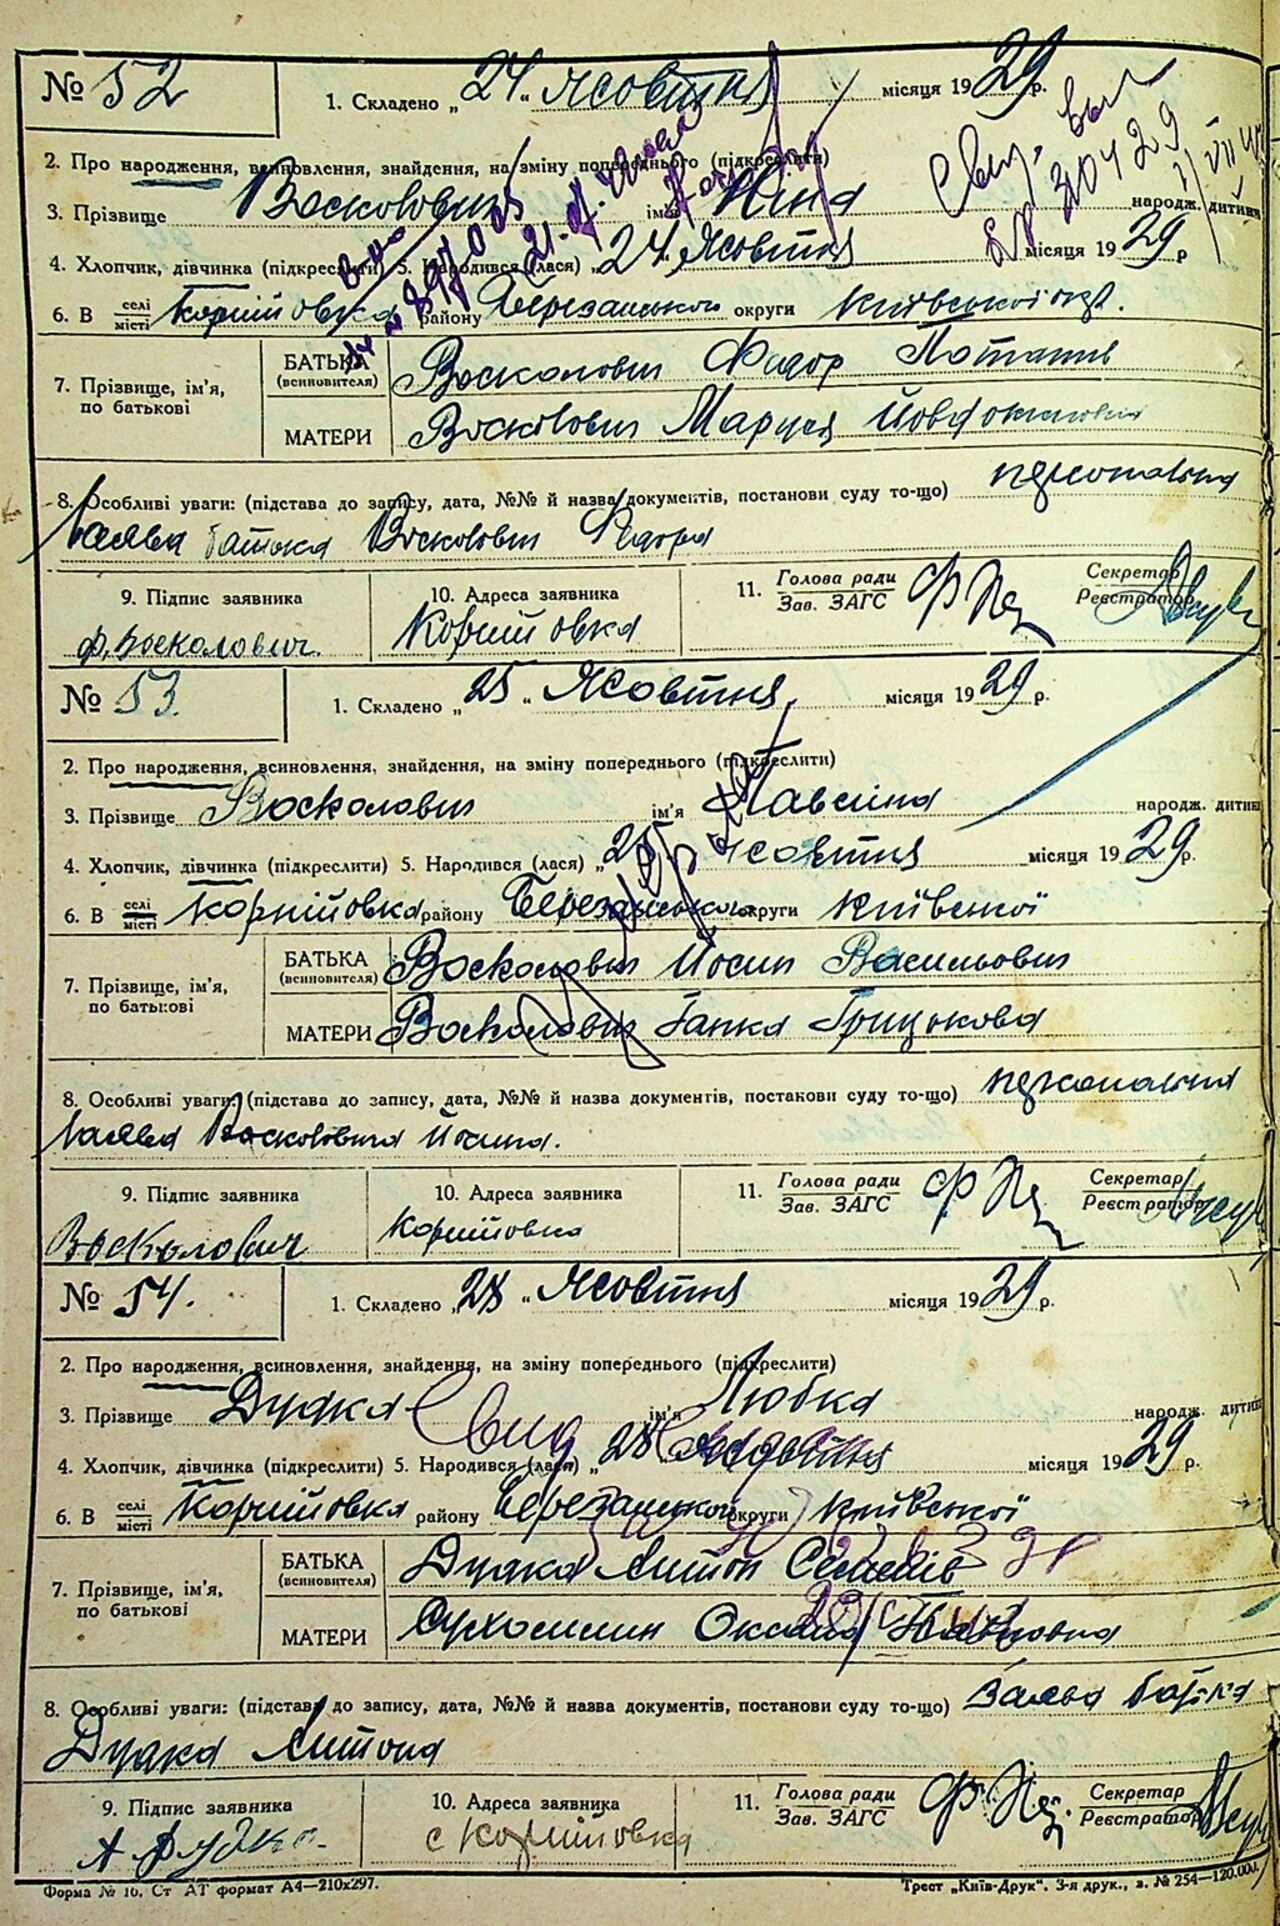 № 52
1. Складено „24“ Жовтня місяця 1929 р.
2. Про народження, всиновлення, знайдення, на зміну попереднього (підкреслити)
3. Прізвище Восколович ім'я Ніна народж. дитини
4. Хлопчик, дівчинка (підкреслити) 5. Народився (лася) „24“ Жовтня місяця 1929 р
6. В селі місті Корніїовка району Березанського округи Київської
7. Прізвище, ім'я, по батькові
БАТЬКА (всиновителя) Восколович Федор Потапів
МАТЕРИ Восколович Маруся
8. Особливі уваги: (підстава до запису, дата, №№ й назва документів, постанови суду то-що) персональна
заява батька Восколович Федора
9. Підпис заявника
Ф. Восколович.
10. Адреса заявника
Корніїовка
11. Голова ради Зав. ЗАГС
Секретар Реєстратор
№ 53.
1. Складено „25“ Жовтня місяця 1929 р.
2. Про народження, всиновлення, знайдення, на зміну попереднього (підкреслити)
3. Прізвище Восколович ім'я Павліна народж. дитини
4. Хлопчик, дівчинка (підкреслити) 5. Народився (лася) „25 Жовтня місяця 1929 р.
6. В селі місті Корніїовка району Березанського округи Київської
7. Прізвище, ім'я, по батькові
БАТЬКА (всиновителя) Восколович Йосип Васильович
МАТЕРИ Восколович Ганка Грицькова
8. Особливі уваги: (підстава до запису, дата, №№ й назва документів, постанови суду то-що) персональна
заява Восколовича Йосипа.
9. Підпис заявника
Восколович
10. Адреса заявника
Корніїовка
11. Голова ради Зав. ЗАГС
Секретар Реєстратор
№ 54.
1. Складено „28“ Жовтня місяця 1929 р.
2. Про народження, всиновлення, знайдення, на зміну попереднього (підкреслити)
3. Прізвище Дудка ім'я Любка народж. дитини
4. Хлопчик, дівчинка (підкреслити) 5. Народився (лася) „28 Жовтня місяця 1929 р.
6. В селі місті Корніїовка району Березанської округи Київської
7. Прізвище, ім'я, по батькові
БАТЬКА (всиновителя) Дудка Антон
МАТЕРИ Сухомлин Оксана
8. Особливі уваги: (підстава до запису, дата, №№ й назва документів, постанови суду то-що) Заява батька
Дудка Антона
9. Підпис заявника
А Дудка.
10. Адреса заявника
с Корніїовка
11. Голова ради Зав. ЗАГС
Секретар Реєстратор
Форма № 16. Ст АТ формат А4—210х297.
Трест „Київ-Друк“. 3-я друк., з. № 254—120.000.